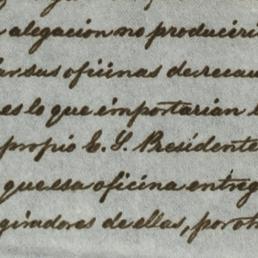 alegacion no produciri
sus oficinas de recau
es lo que importarian l
propio E. S. Presidente
que esa oficina entreg
giradores de ellas, por ot